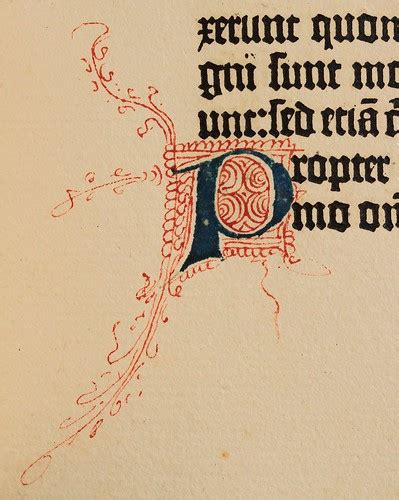 xerunt quon
gnī sunt mo
unt: sed etiā
Propter
mo om̄